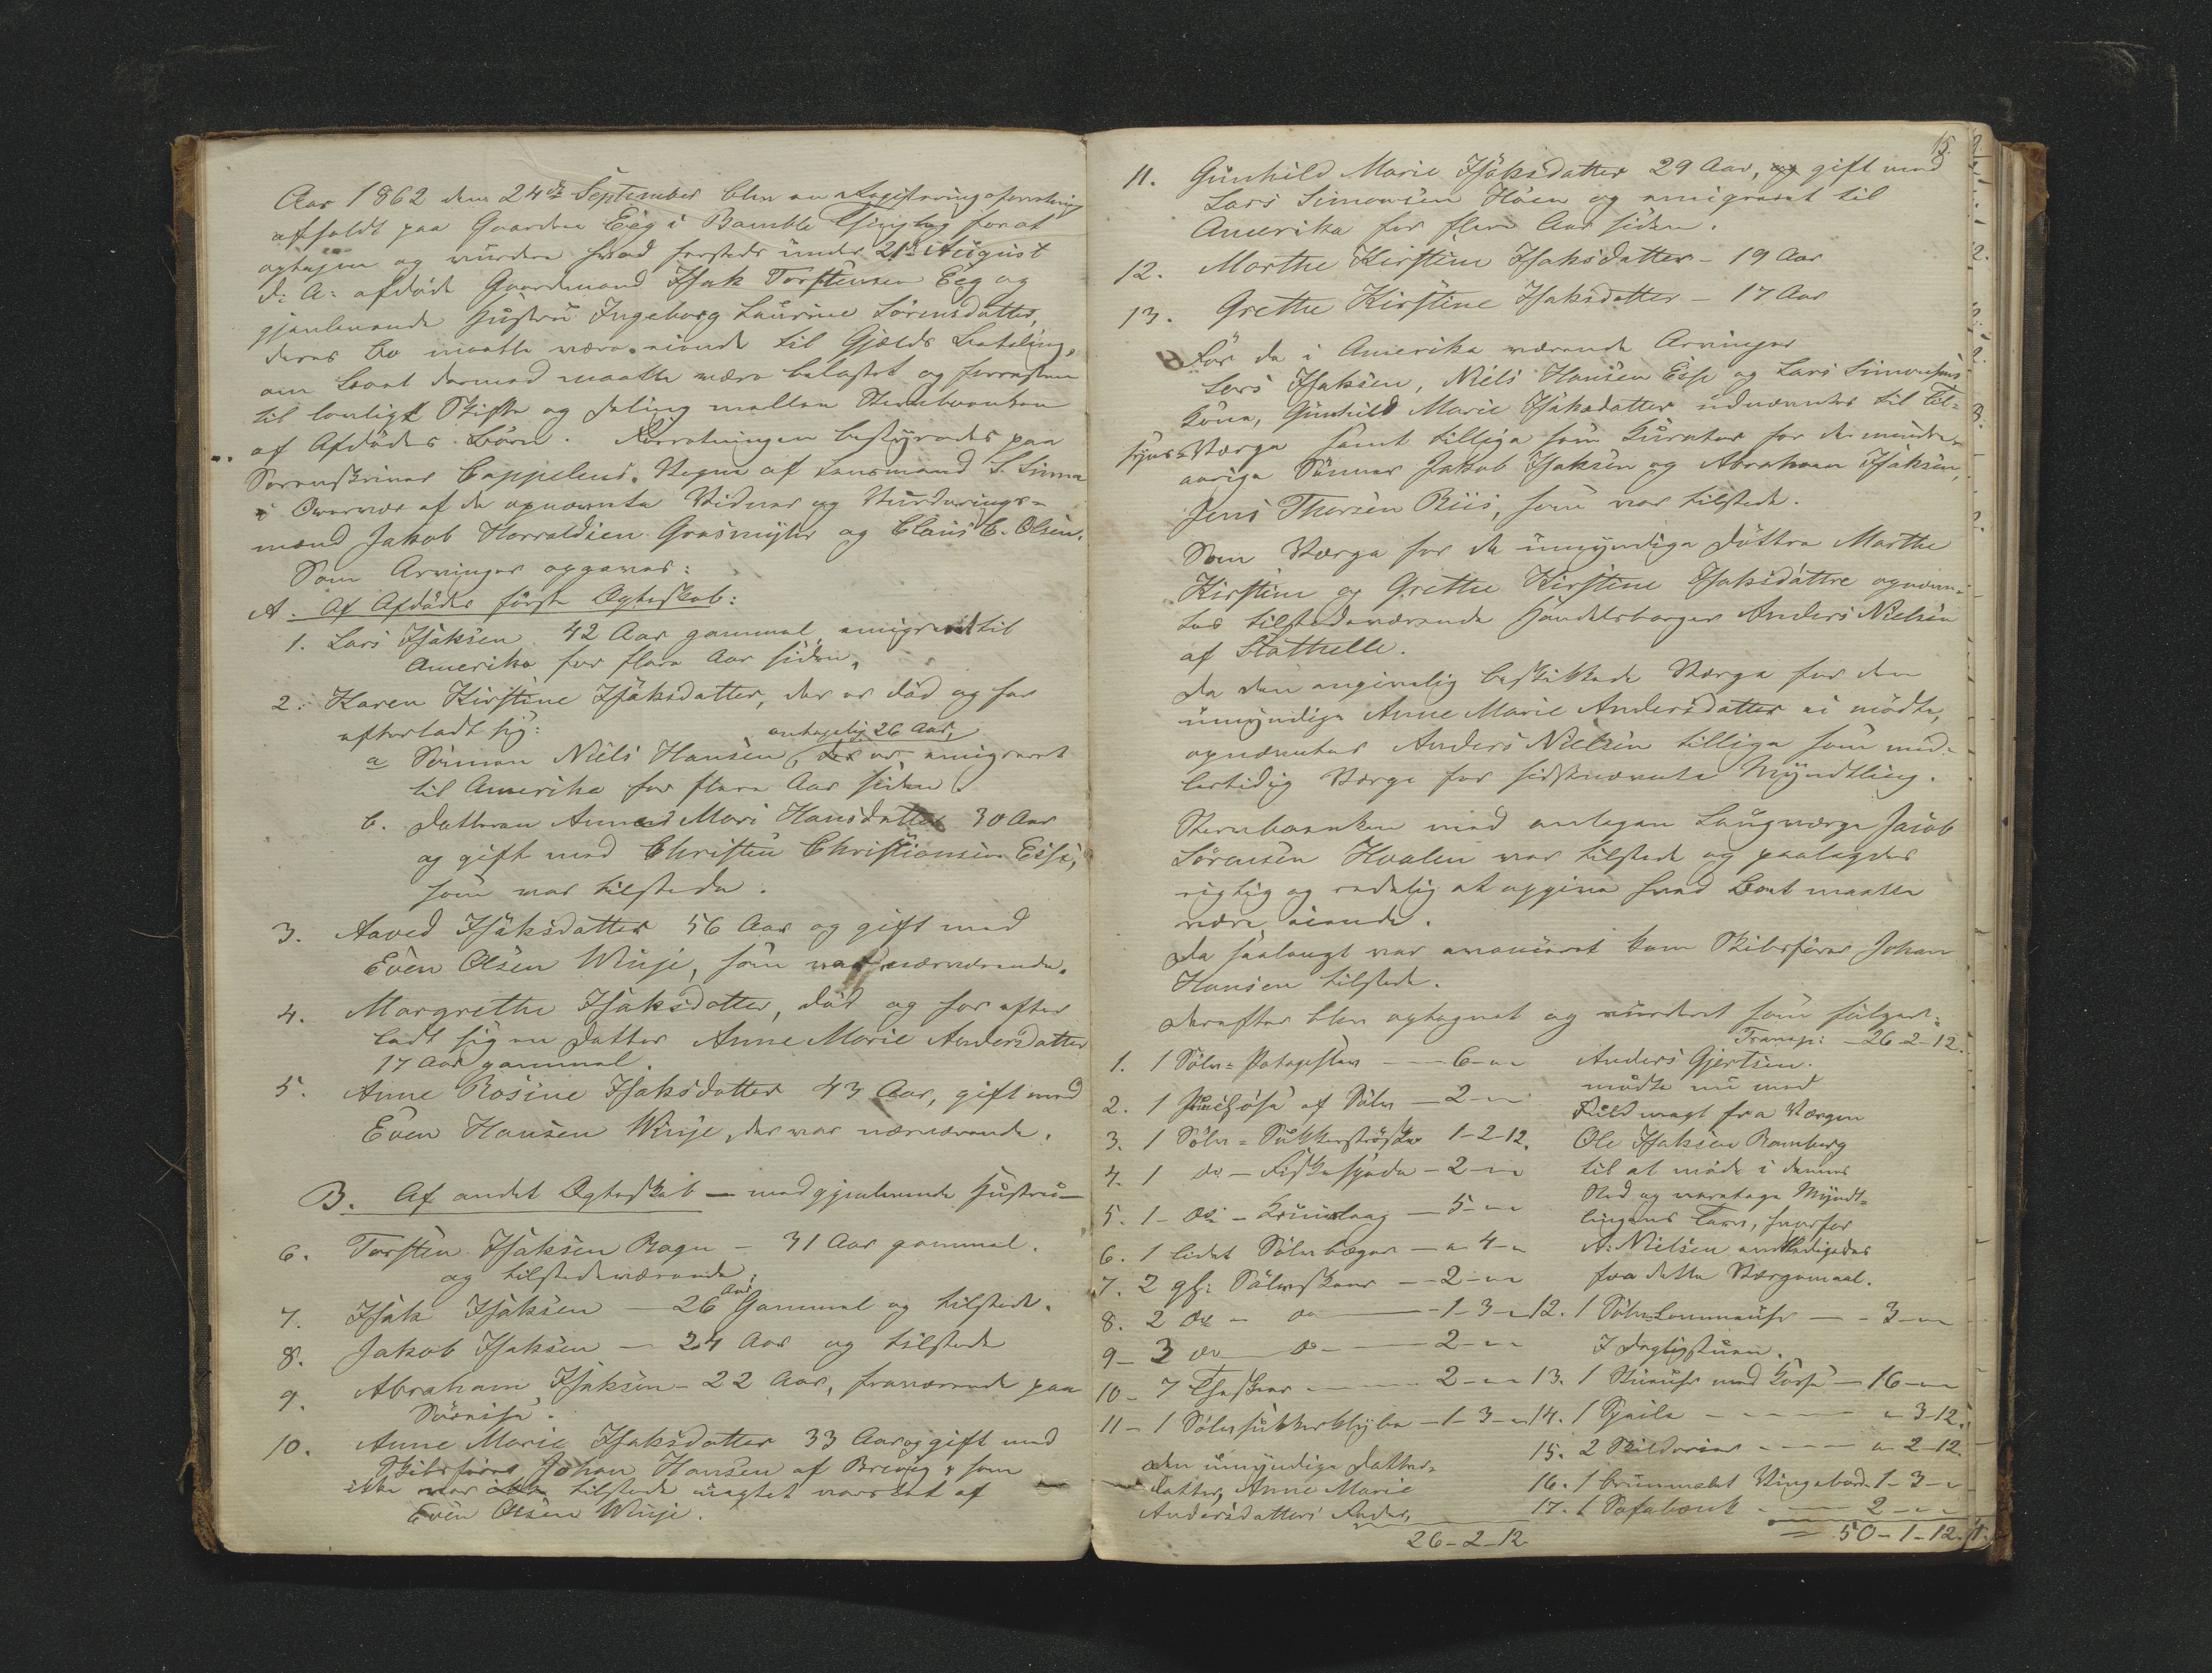 Aar 1862 den 24de September blev en Registreringsforretning
afholdt paa Gaarden Eeg i Bamble Thinglag for at
optegne og vurdere hvad forstede under 21de August
d: A: afdøde Gaardmand Isak Torstensen Eeg og
gjenlevende Hustru Ingeborg Laurine Sørensdatter,
deres Bo maatte være eiende til Gjælds Betaling,
om Boet dermed maatte være belastet og forresten
til lovligt Skifte og Deling mellem Stervboenken
og Afdødes Børn. Forretningen bestyredes paa
Sorenskriver Cappelens Vegne af Lensmand S. Linna
i Overvær af de opnævnte Vidner og Vurderings-
mænd Jakob Harraldsen Grasmyhr og Claus C. Olsen.
Som Arvinger opgaves:
A. Af Afdødes første Ægteskab:
1. Lars Isaksen 42 Aar gammel, emigreret til
Amerika for flere Aar siden.
2. Karen Kirstine Isaksdatter, der er død og har
efterladt sig:
antagelig 26 Aar,
a Sønnen Niels Hansen, der er emigreret
til Amerika for flere Aar siden.
b. Datteren Anne Mari Hansdatter 30 Aar
og gift med Christen Christiansen Essi,
som var tilstede.
3. Aaved Isaksdatter 56 Aar og gift med
Even Olsen Winje, som var nærværende.
4. Margrethe Isaksdatter, død og har efter
ladt sig en Datter Anne Marie Andersdatter
17 Aar gammel.
5. Anne Rosine Isaksdatter 43 Aar, gift med
Even Hansen Winje, der var nærværende.
B. Af andet Ægteskab – med gjenlevende Hustru –
6. Torsten Isaksen Ragn – 31 Aar gammel.
og tilstedeværende.
7. Isak Isaksen – 26 Aar Gammel og tilstede.
8. Jakob Isaksen – 24 Aar og tilstede
9. Abraham Isaksen – 22 Aar, fraværende paa
Søreise.
10. Anne Marie Isaksdatter 33 Aar og gift med
Skibsfører Johan Hansen af Brevig, som
ikke var tilstede uagtet varslet af
Even Olsen Winje.
15.
11. Gunhild Marie Isaksdatter 29 Aar, og gift med
Lars Simonsen Høen og emigreret til
Amerika for flere Aar siden.
12. Marthe Kirstine Isaksdatter – 19 Aar
13. Grethe Kirstine Isaksdatter – 17 Aar
For de i Amerika værende Arvinger
Lars Isaksen, Niels Hansen Esse og Lars Simonsens
Kone, Gunhild Marie Isaksdatter udnævntes til Til-
syns-Værge samt tillige som Kurator for de mindre-
aarige Sønner Jakob Isaksen og Abraham Isaksen,
Jens Thorsen Riis, som var tilstede.
Som Værge for de umyndige Døttre Marthe
Kirstine og Grethe Kirstine Isaksdøttre opnævn-
tes tilstedeværende Handelsborger Anders Nielsen
af Stathelle.
Da den angivelig beskikkede Værge for den
umyndige Anne Marie Andersdatter ei mødte,
opnævntes Anders Nielsen tillige som mid-
lertidig Værge for sidstnævnte Myndtling.
Stervboenken med antagen Laugværge Jacob
Sørensen Hvalen var tilstede og paalagdes
rigtig og redelig at opgive hvad Boet maatte
være eiende.
Da saalangt var avanceret kom Skibsfører Johan
Hansen tilstede.
Derefter blev optegnet og vurderet som følger:
1. 1 Sølv-Potageskee – 6 – " "
2. 1 af Sølv – 2 – " "
3. 1 Sølv-Sukkerstrøskee 1-2-12.
4. 1 do – Fiskespade – 2 – " "
5. 1 – do – – 5 – " "
6. 1 lidet Sølvbæger – " 4 – "
7. 2 gl: Sølvskeer – 2 – " "
8. 2 do – do – 1-3-"
9 – 3 do – do – 2 – " "
10 – 7 Theskeer – 2 – " "
11 – 1 Sølvsukkerklype – 1-3-"
Den umyndige Datter-
datter, Anne Marie
Andersdatters Fader,
26-2-12
Transp: – 26-2-12.
Anders Gjertsen.
mødte nu med
Fuldmagt fra Værgen
Ole Isaksen Romberg
til at møde i dennes
Sted og varetage Myndt-
lingens Tarv, hvorfor
A: Nielsen entledigedes
fra dette Værgemaal.
12. 1 Sølvlommeuhr – 3 – " "
I Dagligstuen.
13. 1 Stueuhr med Kasse – 16 – " "
14. 1 Speile – " 3-12.
15. 2 Skilderier – " 2-12
16. 1 brunmalet Vingebord 1-3-"
17. 1 Sofabænk – 2 – " "
50-1-12.